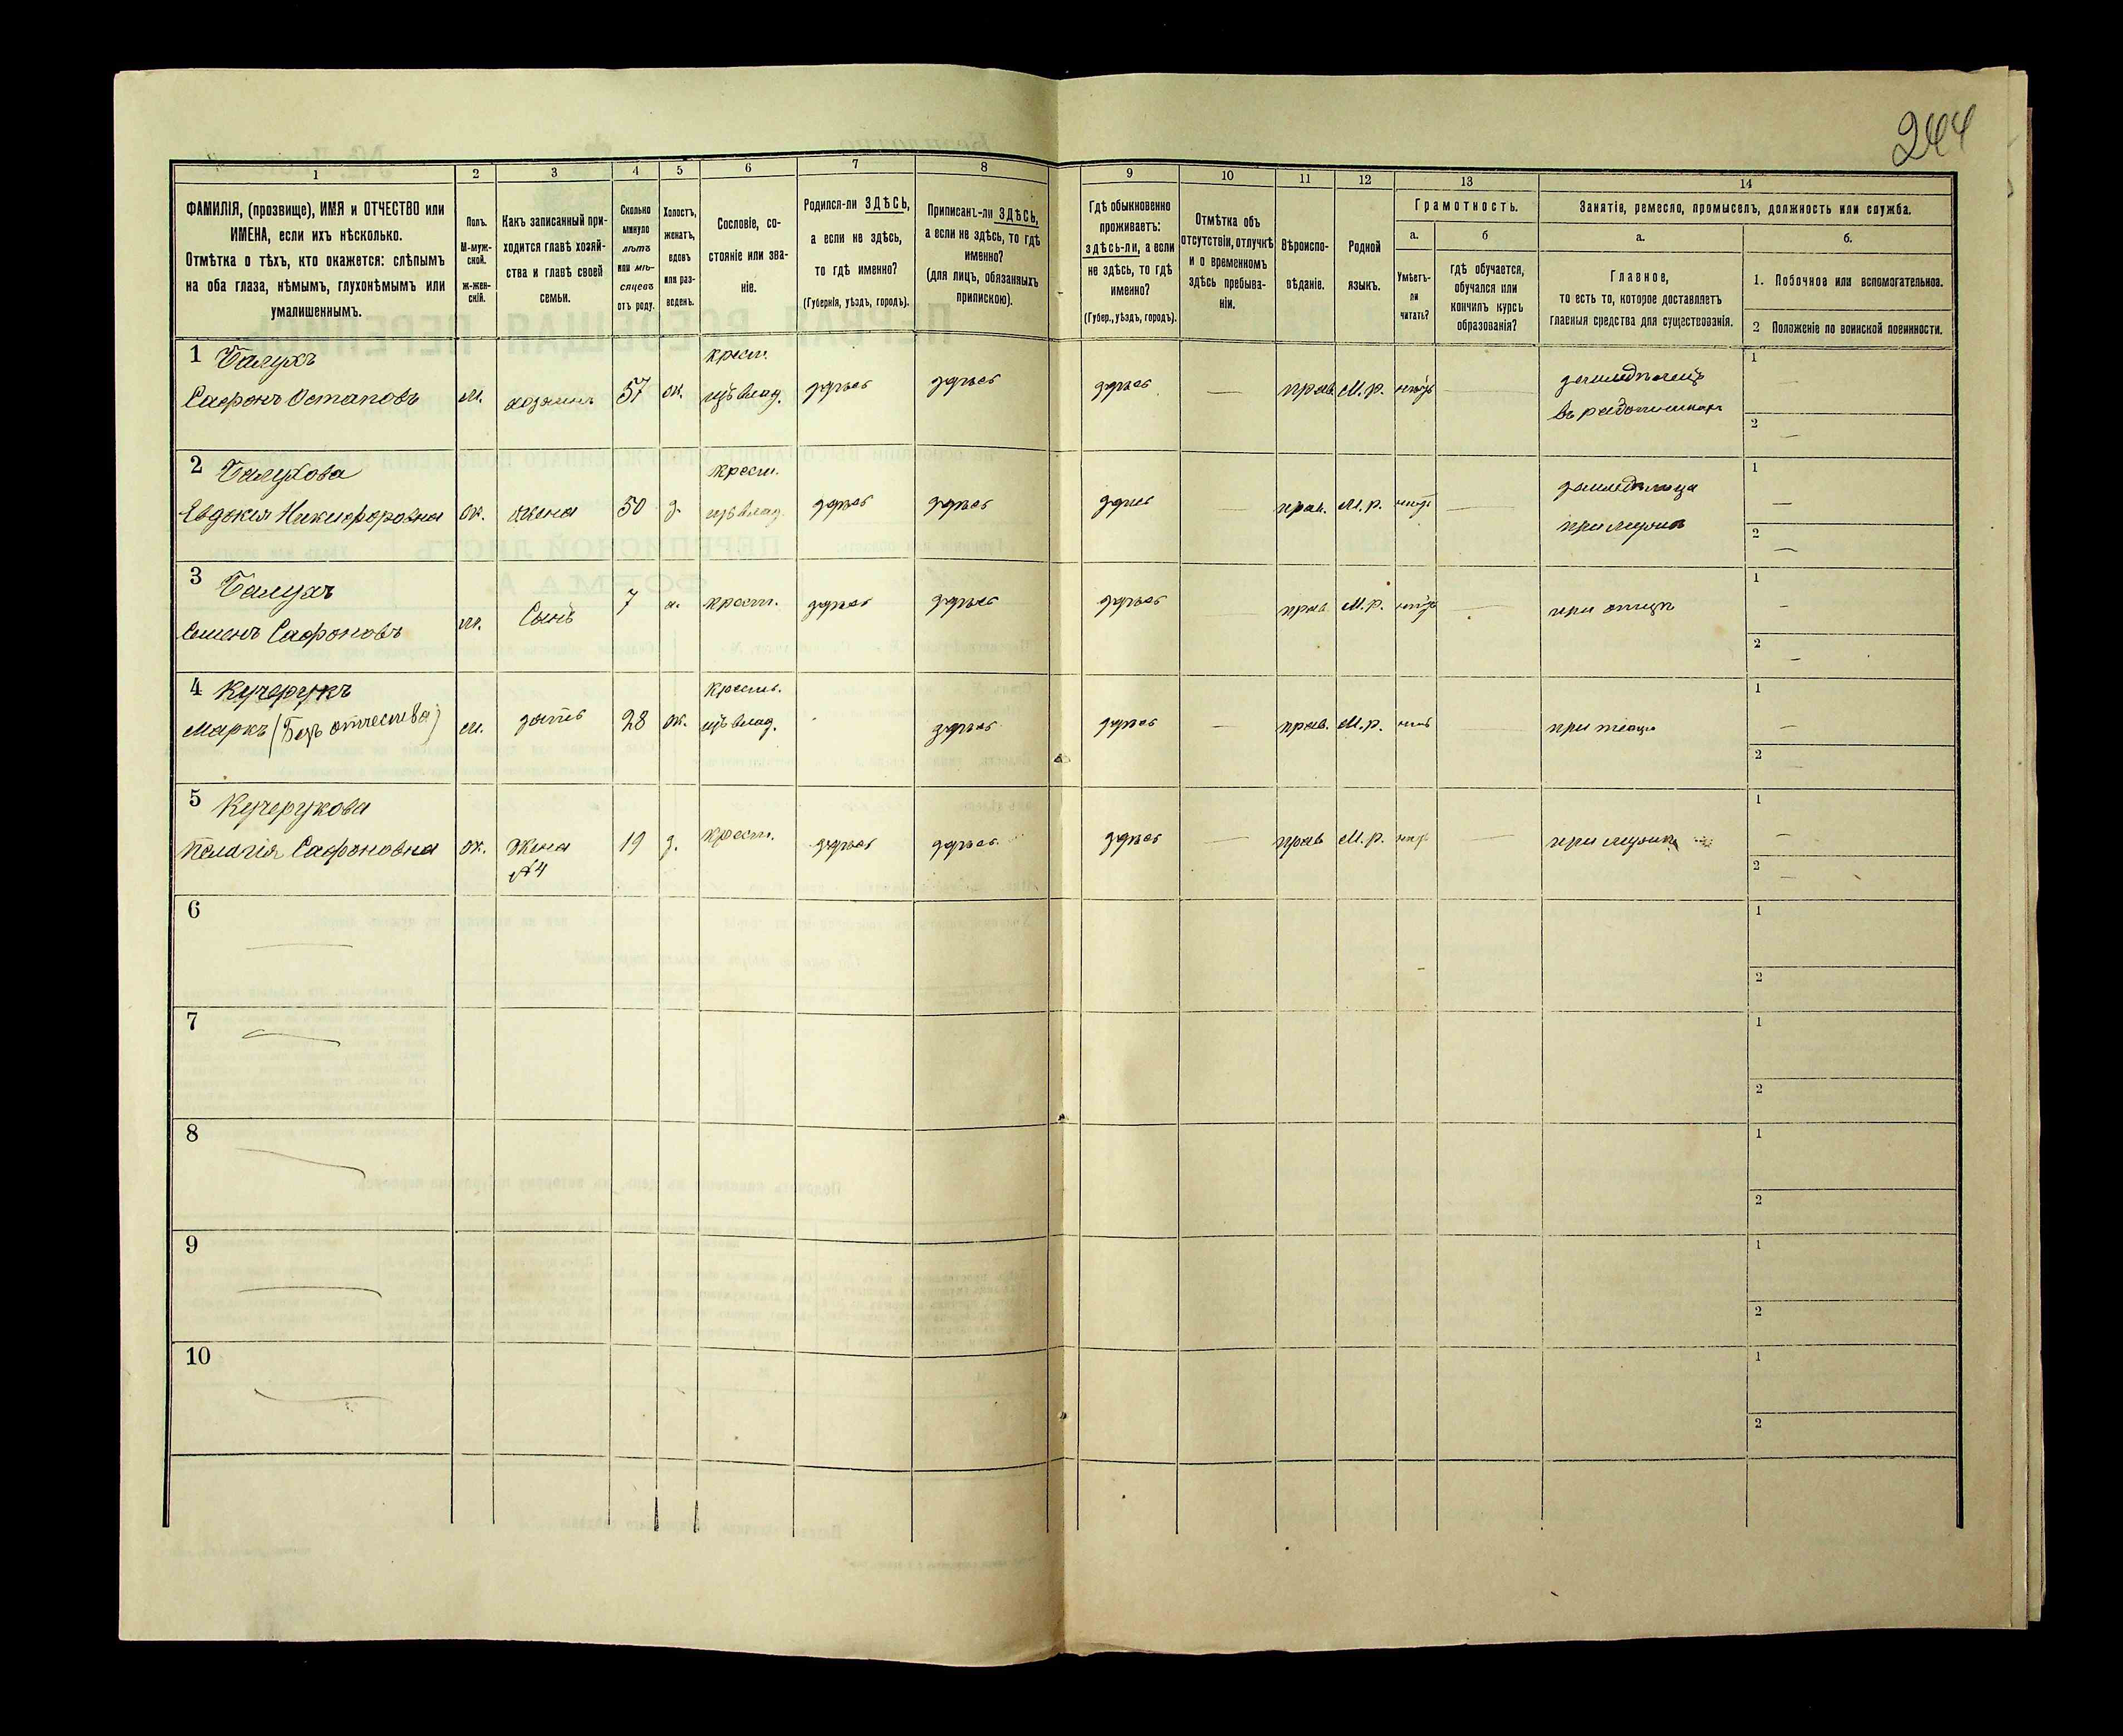 244
1
2
3
4
5
6
7
8
9
10
11
12
13
14
ФАМИЛІЯ, (прозвище), ИМЯ и ОТЧЕСТВО или
ИМЕНА, если ихъ нѣсколько.
Отмѣтка о тѣхъ, кто окажется: слѣпымъ
на оба глаза, нѣмымъ, глухонѣмымъ или
умалишеннымъ.
Полъ.
М-муж-
ской.
ж-жен-
скій.
Какъ записанный при-
ходится главѣ хозяй-
ства и главѣ своей
семьи.
Сколько
минуло
лѣтъ
или мѣ-
сяцевъ
отъ роду.
Холостъ,
женатъ,
вдовъ
или раз-
веденъ.
Сословіе, со-
стояніе или зва-
ніе.
Родился-ли ЗДѢСЬ,
а если не здѣсь,
то гдѣ именно?
(Губернія, уѣздъ, городъ).
Приписанъ-ли ЗДѢСЬ,
а если не здѣсь, то гдѣ
именно?
(для лицъ, обязанныхъ
припискою).
Гдѣ обыкновенно
проживаетъ:
здѣсь-ли, а если
не здѣсь, то гдѣ
именно?
(Губер., уѣздъ, городъ).
Отмѣтка объ
отсутствіи, отлучкѣ
и о временномъ
здѣсь пребыва-
ніи.
Вѣроиспо-
вѣданіе.
Родной
языкъ.
Грамотность.
а.
Умѣетъ-
ли
читать?
б
гдѣ обучается,
обучался или
кончилъ курсъ
образованія?
Занятіе, ремесло, промыселъ, должность или служба.
а.
Главное,
то есть то, которое доставляетъ
главныя средства для существованія.
б.
1. Побочное или вспомогательное.
2 Положеніе по воинской повинности.
1 Балухъ
Сафронъ Остаповъ
м.
хозяинъ
57
ж.
крест.
изъ влад.
здѣсь
здѣсь
здѣсь
—
прав.
М.р.
нѣтъ
земледѣлецъ
1
—
2
—
2 Балухова
Евдокія Никифоровна
ж.
жена
50
з.
крест.
изъ влад.
здѣсь
здѣсь
здѣсь
—
прав.
М.р.
нѣтъ
при мужѣ
1
—
2
—
3 Балухъ
Семенъ Сафроновъ
м.
Сынъ
7
х.
крест.
здѣсь
здѣсь
здѣсь
прав.
М.р.
нѣтъ
при отцѣ
1
—
2
—
4 Кучерукъ
Маркъ (Безъ отчества)
м.
зять
28
ж.
крест.
изъ влад.
здѣсь
здѣсь
—
прав.
М.р.
нѣтъ
при тесцѣ
1
—
2
—
5 Кучерукова
Пелагія Сафроновна
ж.
Жена
№4
19
з.
крест.
здѣсь
здѣсь
здѣсь
—
прав
М.р.
нѣтъ
при мужѣ
1
—
2
—
6
1
2
7
1
2
8
1
2
9
1
2
10
1
2